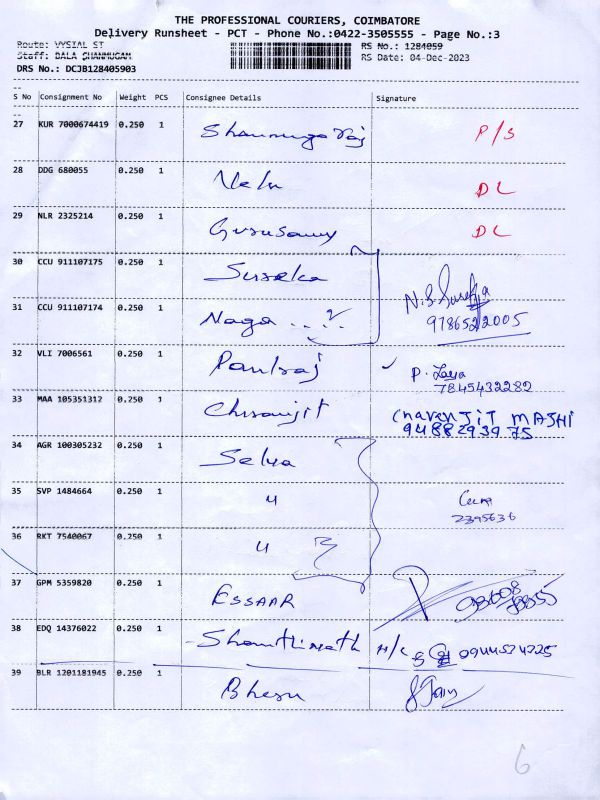 THE PROFESSIONAL COURIERS, COIMBATORE
Delivery Runsheet - PCT - Phone No.:0422-3505555 - Page No.:3
Route: VYSIAL ST
RS No.: 1284059
Staff: BALA SHANMUGAM
RS Date: 04-Dec-2023
DRS No.: DCJB128405903
S No Consignment No Weight PCS Consignee Details Signature
27 KUR 7000674419 0.250 1 Shanmuga raj P/S
28 DDG 680055 0.250 1 DL
29 NLR 2325214 0.250 1 Gurusamy DL
30 CCU 911107175 0.250 1 Sureka N.S. Surekja
31 CCU 911107174 0.250 1 Naga .... 2 9786522005
32 VLI 7006561 0.250 1 Paulraj ✓ P.
7845432282
33 MAA 105351312 0.250 1 Chiranjit ChavenJIT MASHI
9488293975
34 AGR 100305232 0.250 1 Selva
35 SVP 1484664 0.250 1 "
2395636
36 RKT 7540067 0.250 1 " 3
37 GPM 5359820 0.250 1 ESSAAR
38 EDQ 14376022 0.250 1 Shanthinath H/C 0944524225
39 BLR 1201181945 0.250 1
6